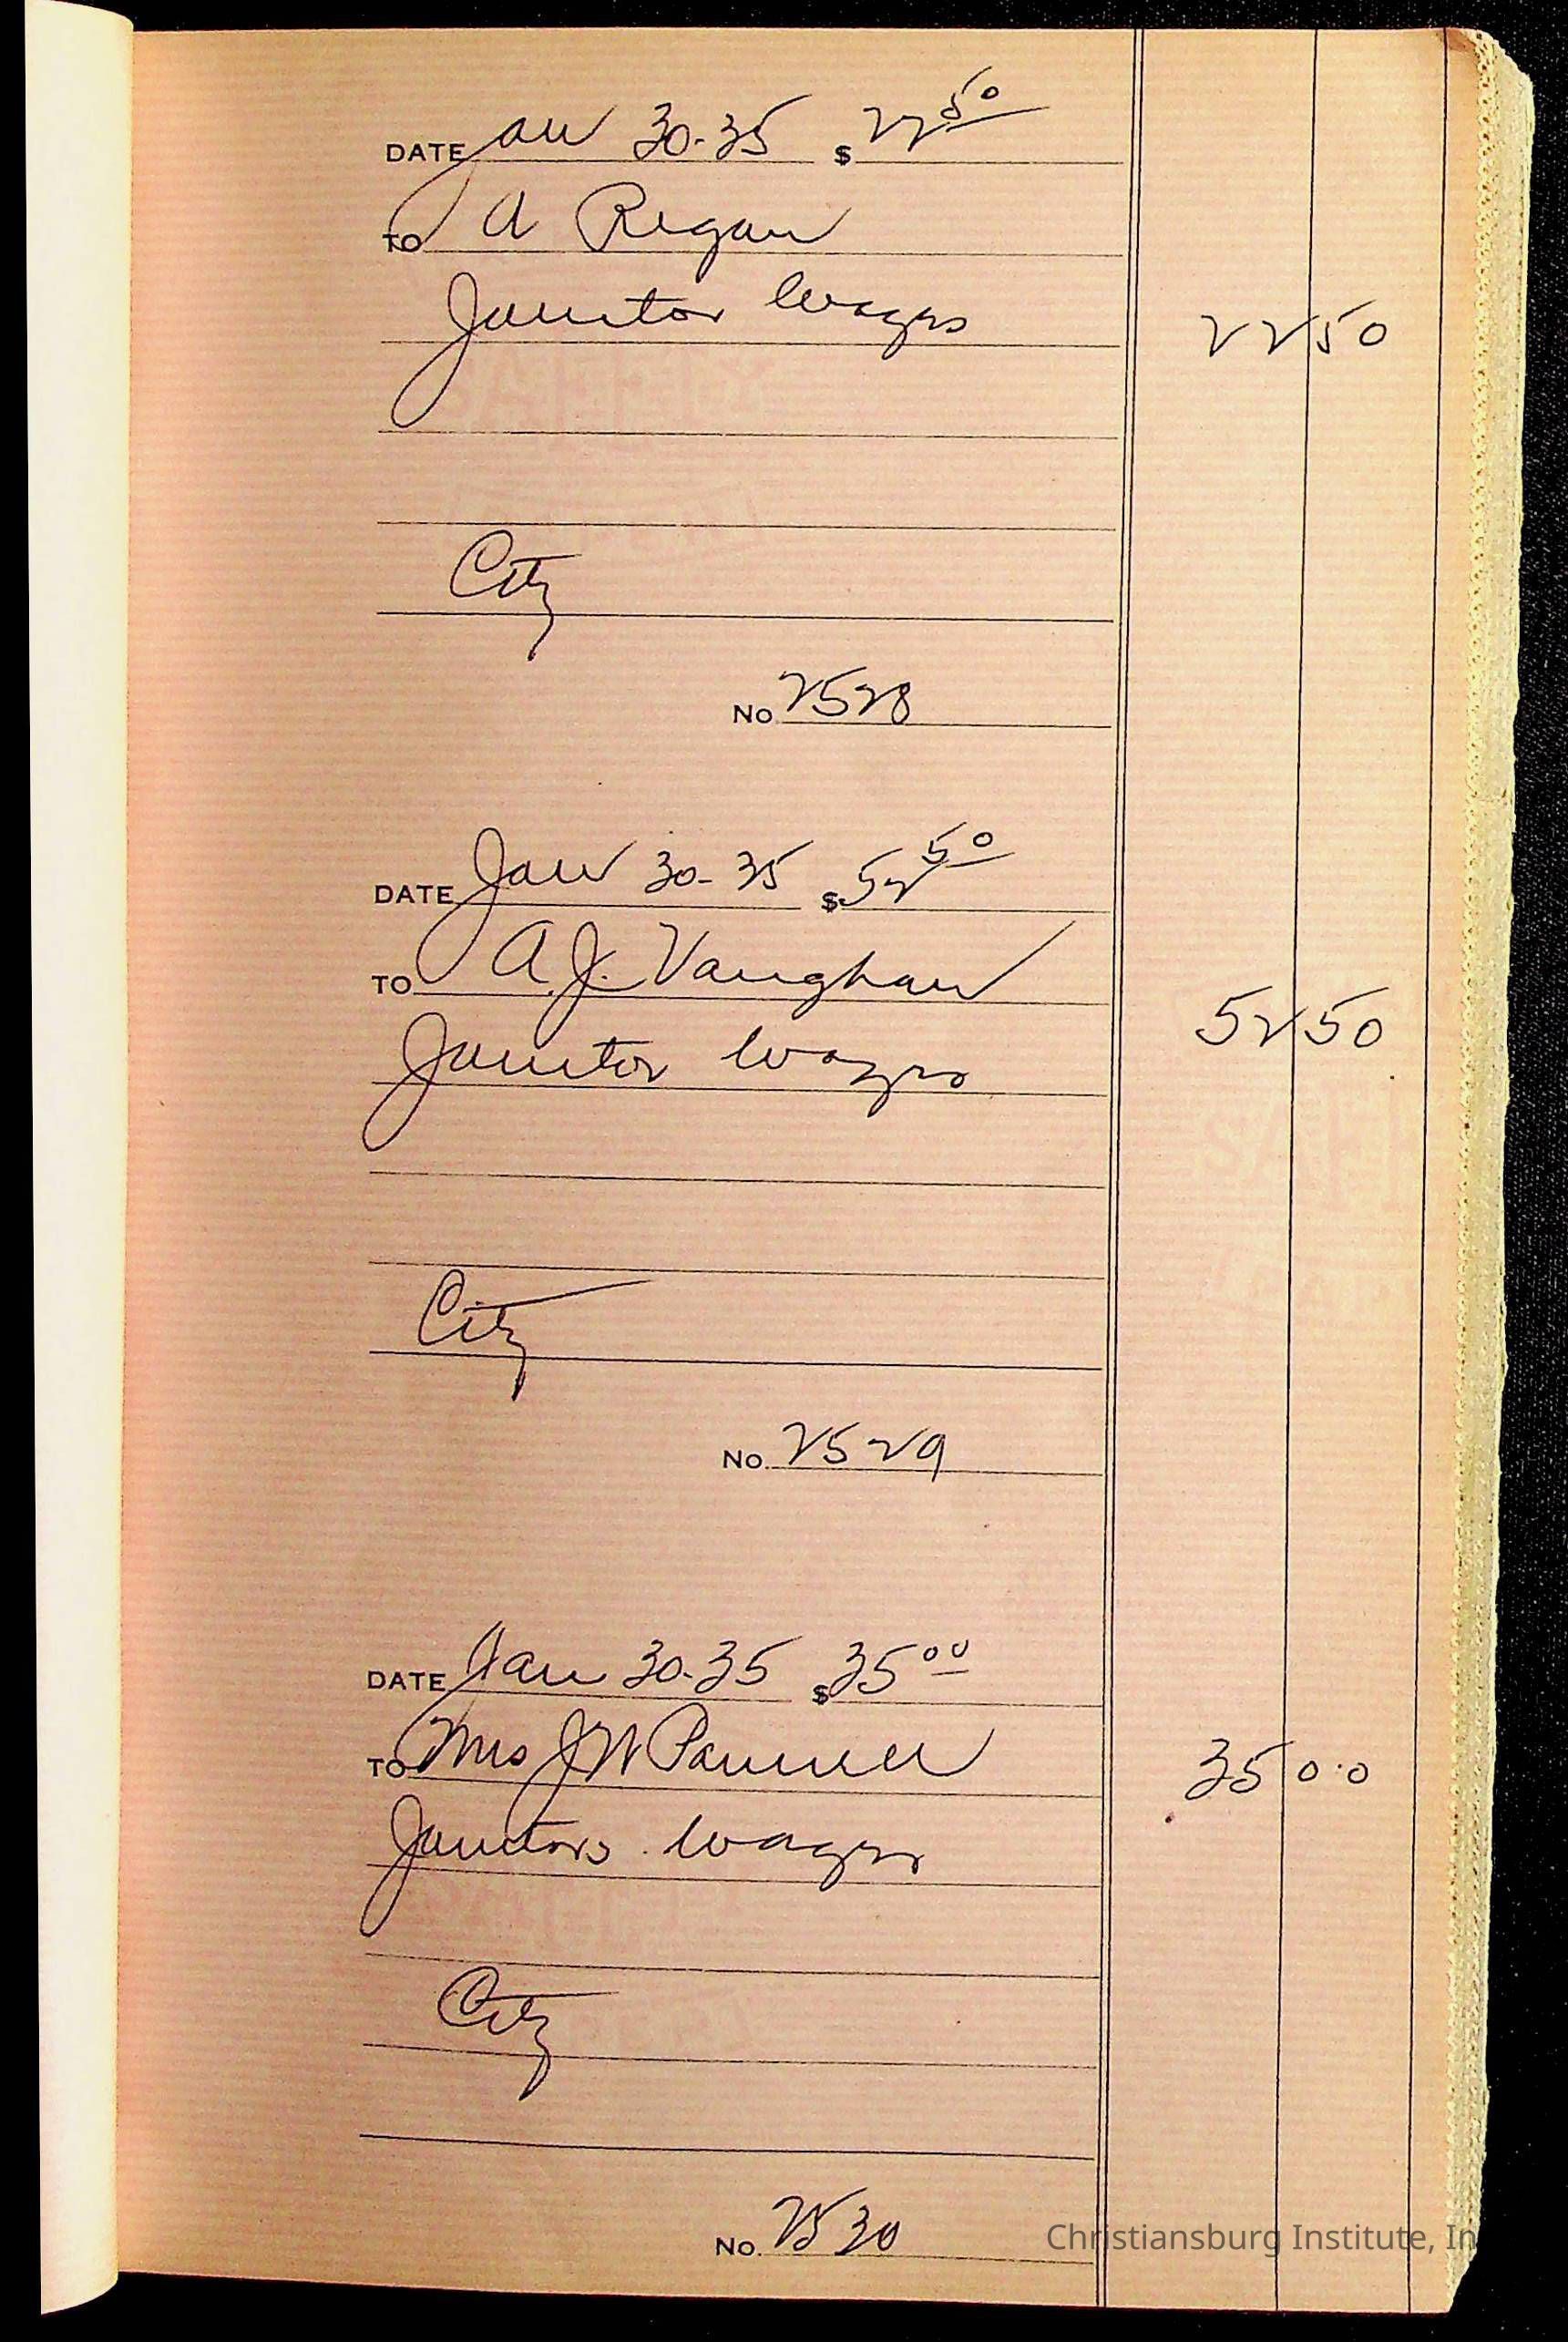 DATE Jan 30-35 $ 22 50
TO A Regan
Janitor Wages 22 50
City
No 2528
DATE Jan 30-35 $ 52 50
TO A. J. Vaughan
Janitor Wages 52 50
City
No. 2529
DATE Jan 30-35 $ 35 00
TO Mrs J W Pannell 35 00
Janitors Wages
City
No. 2530
Christiansburg Institute, In